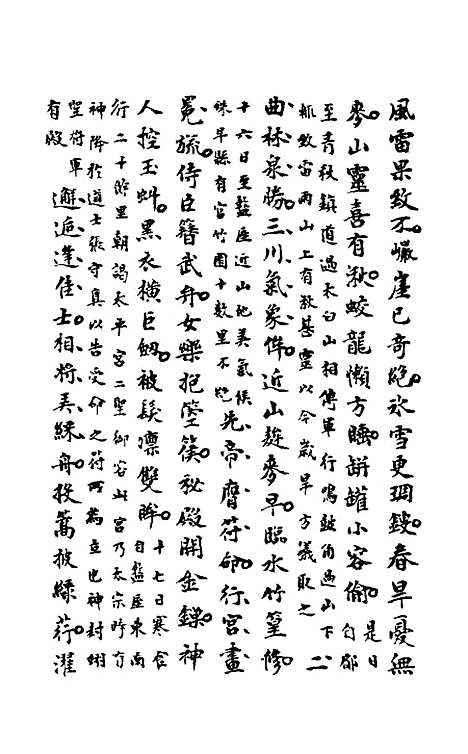 風雷果致不巘崖已奇絕冰雪更琱鎪春旱憂無
麥山靈喜有湫蛟龍懶方睡缾罐小容偷是日自郿
至青秋鎮道過太白山相傳軍行鳴鼓角過山下
輒致雷雨山上有湫甚靈以今歲旱方議取之二
曲林泉勝三川氣象侔近山麰麥早臨水竹篁修
十六日至盩厔近山地美氣候
殊早縣有官竹園十數里不絕先帝膺符命行宮畫
冕旒侍臣簪武弁女樂抱箜篌秘殿開金鎖神
人控玉虯黑衣橫巨劍被髮凜雙眸十七日寒食自盩厔東南
行二十餘里朝謁太平宮二聖御容此宮乃太宗時有
神降於道士張守真以告受命之符所為立也神封翊
聖將軍有殿邂逅逢佳士相將弄綵舟投篙披綠荇濯